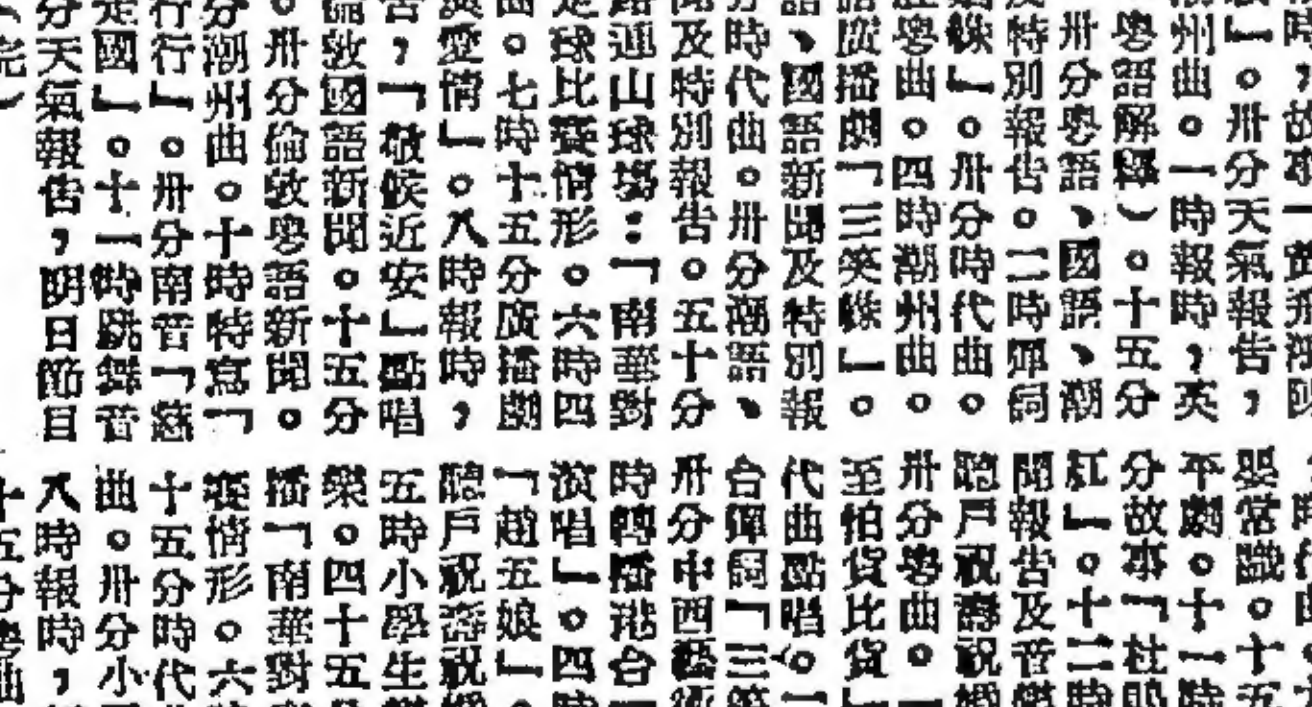 時，故事「黃飛鴻
」。卅分天氣報告，
潮州曲。一時報時，英
粵語解釋）。十五分
卅分粵語、國語、潮
特別報告。二時彈詞
緣」。卅分時代曲。
粵曲。四時潮州曲。
語廣播劇「三笑緣」。
語、國語新聞及特別報
時代曲。卅分潮語、
及特別報告。五十分
路運山球場：「南華對
足球比賽情形。六時四
曲。七時十五分廣播劇
愛情」。八時報時，
告，「敬候近安」點唱
倫敦國語新聞。十五分
。卅分倫敦粵語新聞。
分潮州曲。十時特寫「
行行」。卅分南音「慈
走國」。十一時跳舞音
分天氣報告，明日節目
完）
嬰常識。十五
平劇。十一時
分故事「杜鵑
紅」。十二時
聞報告及音樂
聽戶祝壽祝婚
卅分粵曲。
至怕貨比貨」
代曲點唱。一
台彈詞「三笑
卅分中西藝術
時轉播港台「
演唱」。四時
「趙五娘」。
聽戶祝壽祝婚
五時小學生
樂。四十五分
播「南華對
賽情形。六
十五分時代
曲。卅分小
八時報時，
十五分粵曲